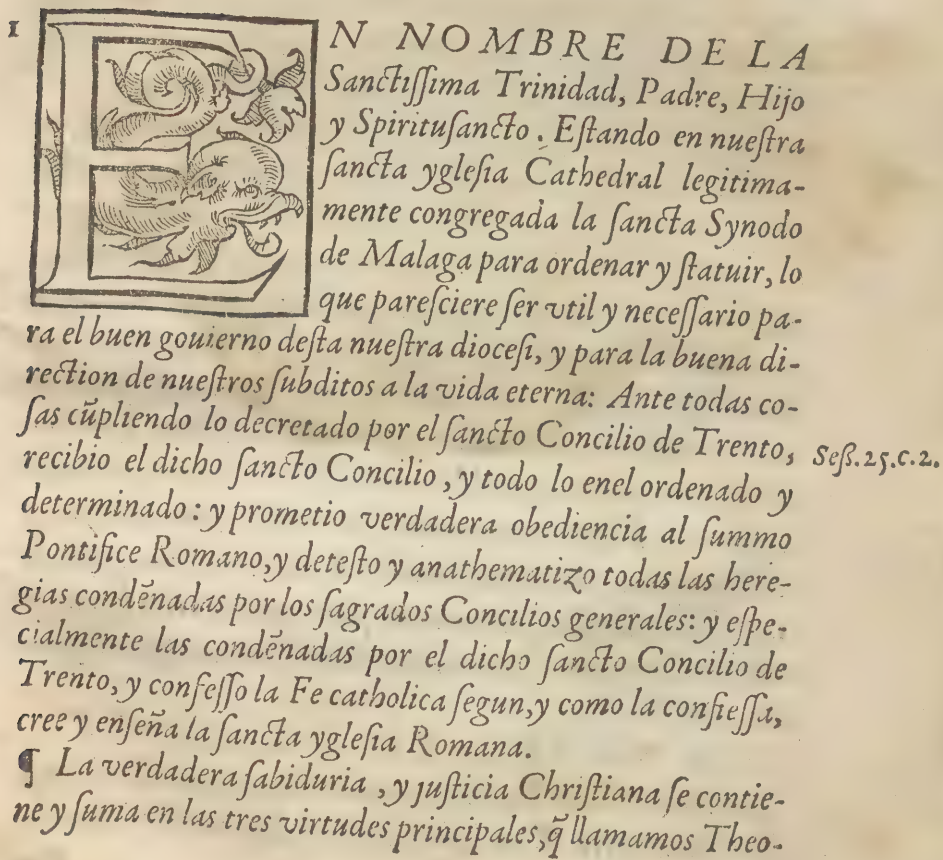 1 EN NOMBRE DE LA
Sanctiſſima Trinidad, Padre, Hijo
y Spirituſancto. Eſtando en nueſtra
ſancta ygleſia Cathedral legitima-
mente congregada la ſancta Synodo
de Malaga para ordenar y ſtatuir, lo
que pareſciere ſer vtil y neceſſario pa-
ra el buen gouierno deſta nueſtra dioceſi, y para la buena di-
rection de nueſtros ſubditos a la vida eterna: Ante todas co-
ſas cũpliendo lo decretado por el ſancto Concilio de Trento, Seſs.25.c.2.
recibio el dicho ſancto Concilio, y todo lo enel ordenado y
determinado: y prometio verdadera obediencia al ſummo
Pontifice Romano, y deteſto y anathematizo todas las here-
gias condẽnadas por los ſagrados Concilios generales: y eſpe-
cialmente las condẽnadas por el dicho ſancto Concilio de
Trento, y confeſſo la Fe catholica ſegun, y como la confieſſa,
cree y enſeña la ſancta ygleſia Romana.
¶ La verdadera ſabiduria, y juſticia Chriſtiana ſe contie-
ne y ſuma en las tres virtudes principales, q̃ llamamos Theo-